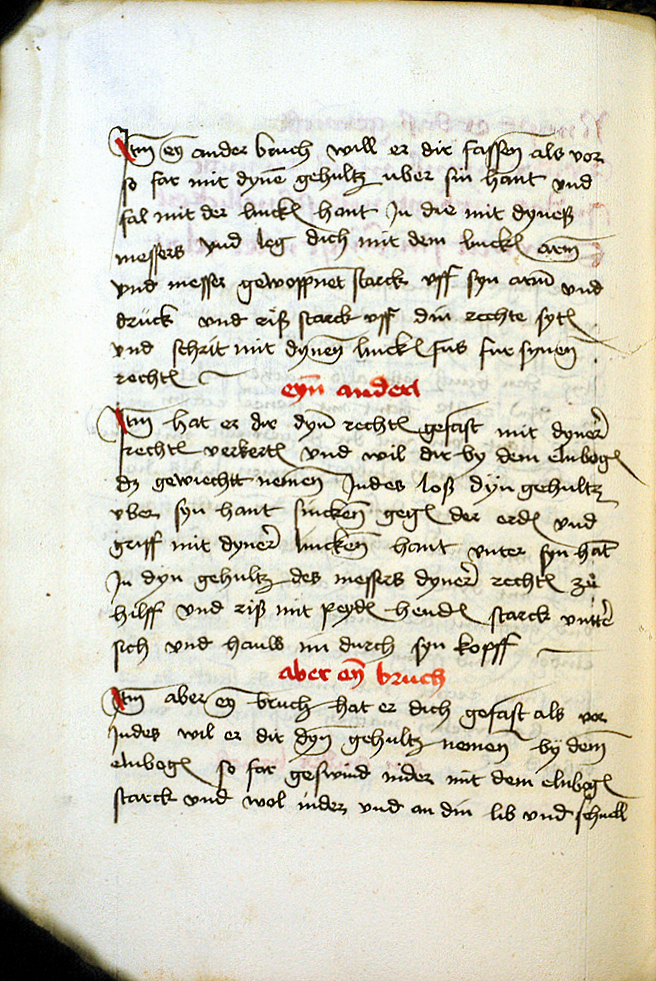 Itm eyn ander bruch will er dir fassen als vor
so far mit dynē gehultz uber sin hant und
fal mit der linckē hant In die mit dyneß
messers und leg dich mit dem linckē arm
und messer gewoppnet starck uff syn arm und
drück und riß starck uff din rechte sytē
und schrit mit dynen linckē fus fur synen
rechtē
eyn anderē
Itm hat er dir dyn rechtē gefast mit dyner
rechtē verkertē und wil dir by dem elnbogē
dz gewicht nemen Indes loß dyn gehultz
uber syn hant sincken gegē der erdē und
griff mit dyner lincken hant unter syn hant
In dyn gehultz des messers dyner rechtē zu
hilff und riß mit peydē hendē starck untter
sich und hauw im durch syn kopff
aber eyn bruch
Itm aber eyn bruch hat er dich gefast als vor
Indes wil er dir dyn gehultz nemen by dem
elnbogē so far geswind nider mit dem elnbogē
starck und wol nider und an din lib und schnell